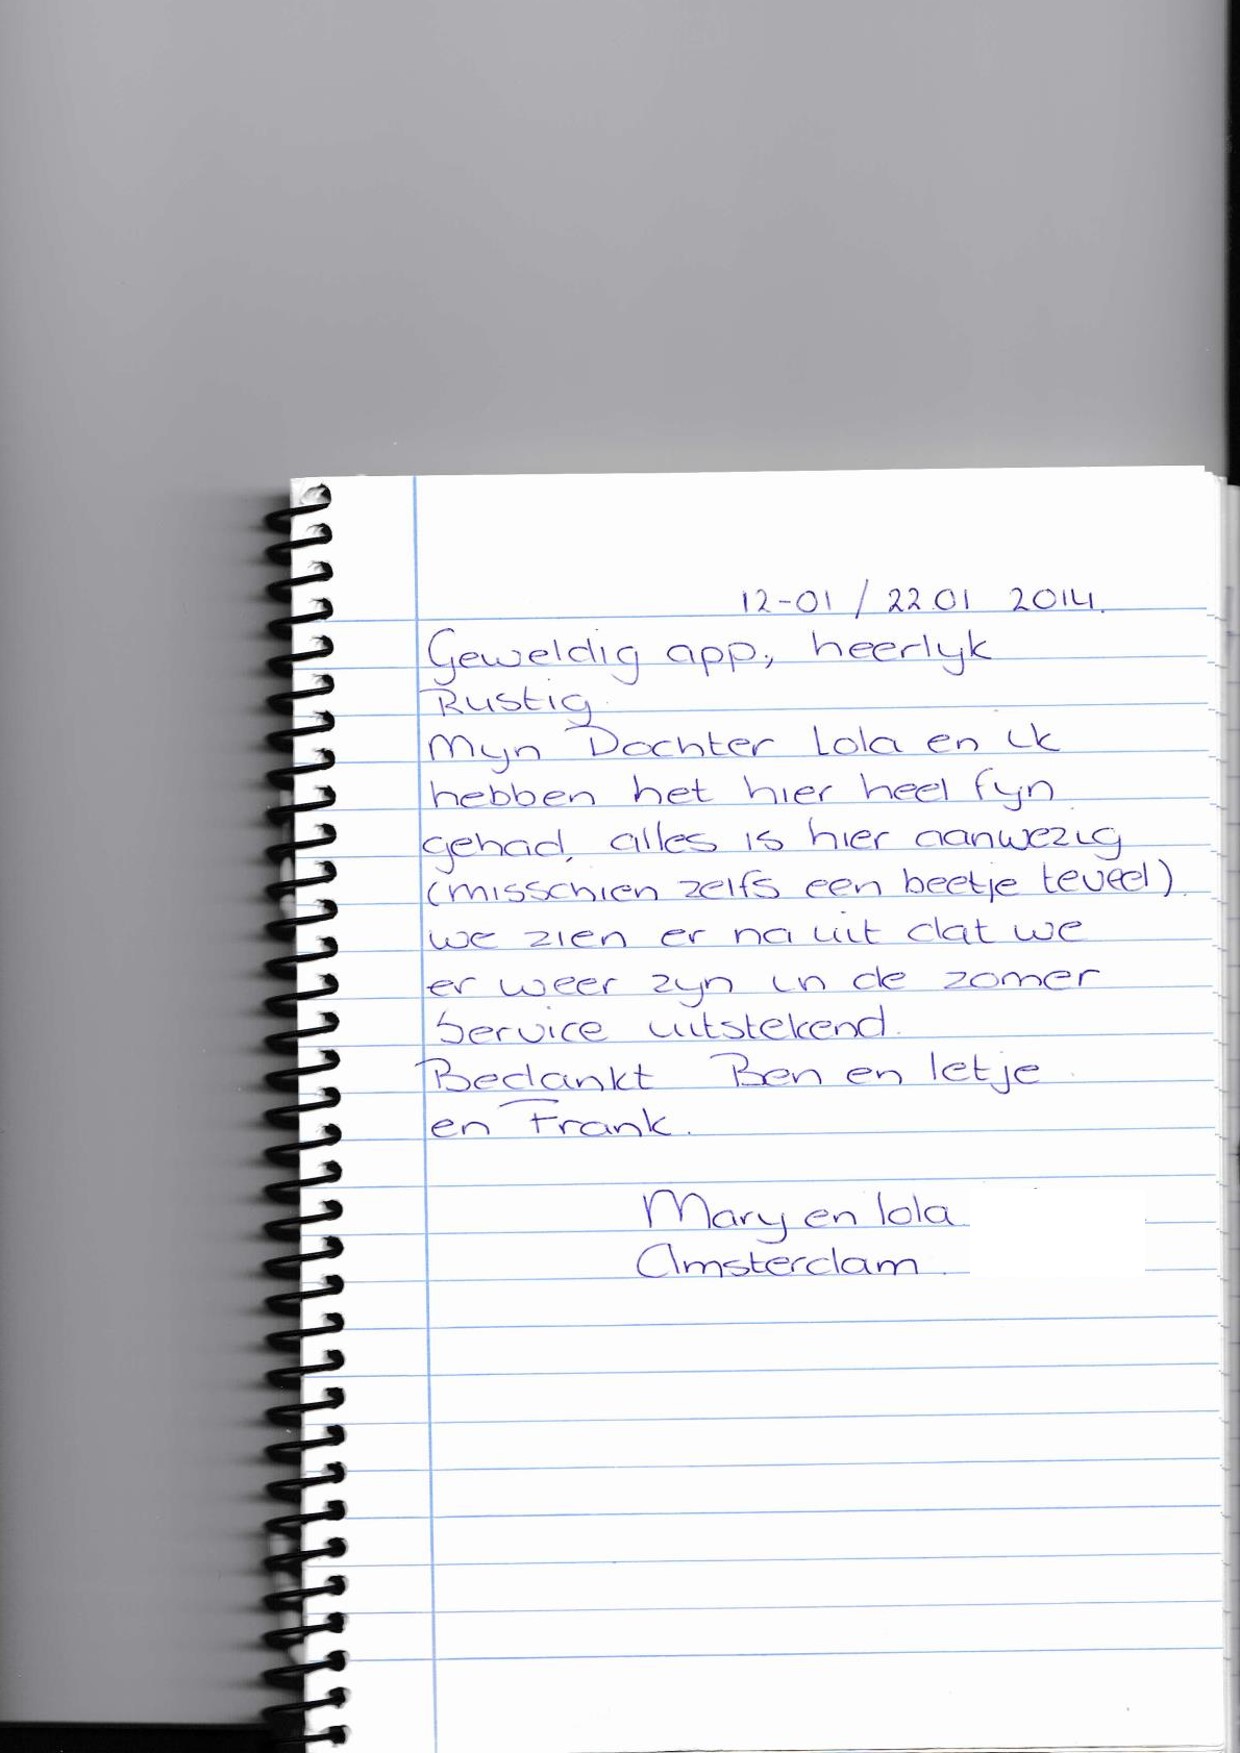 12-01 / 22 01 2014.
Geweldig app., heerlyk
Rustig.
Myn Dochter Lola en ik
hebben het hier heel fyn
gehad, alles is hier aanwezig
(misschien zelfs een beetje teveel).
we zien er na uit dat we
er weer zyn in de zomer
Service uitstekend.
Bedankt Ben en Ietje
en Frank.
Mary en lola
Amsterdam.